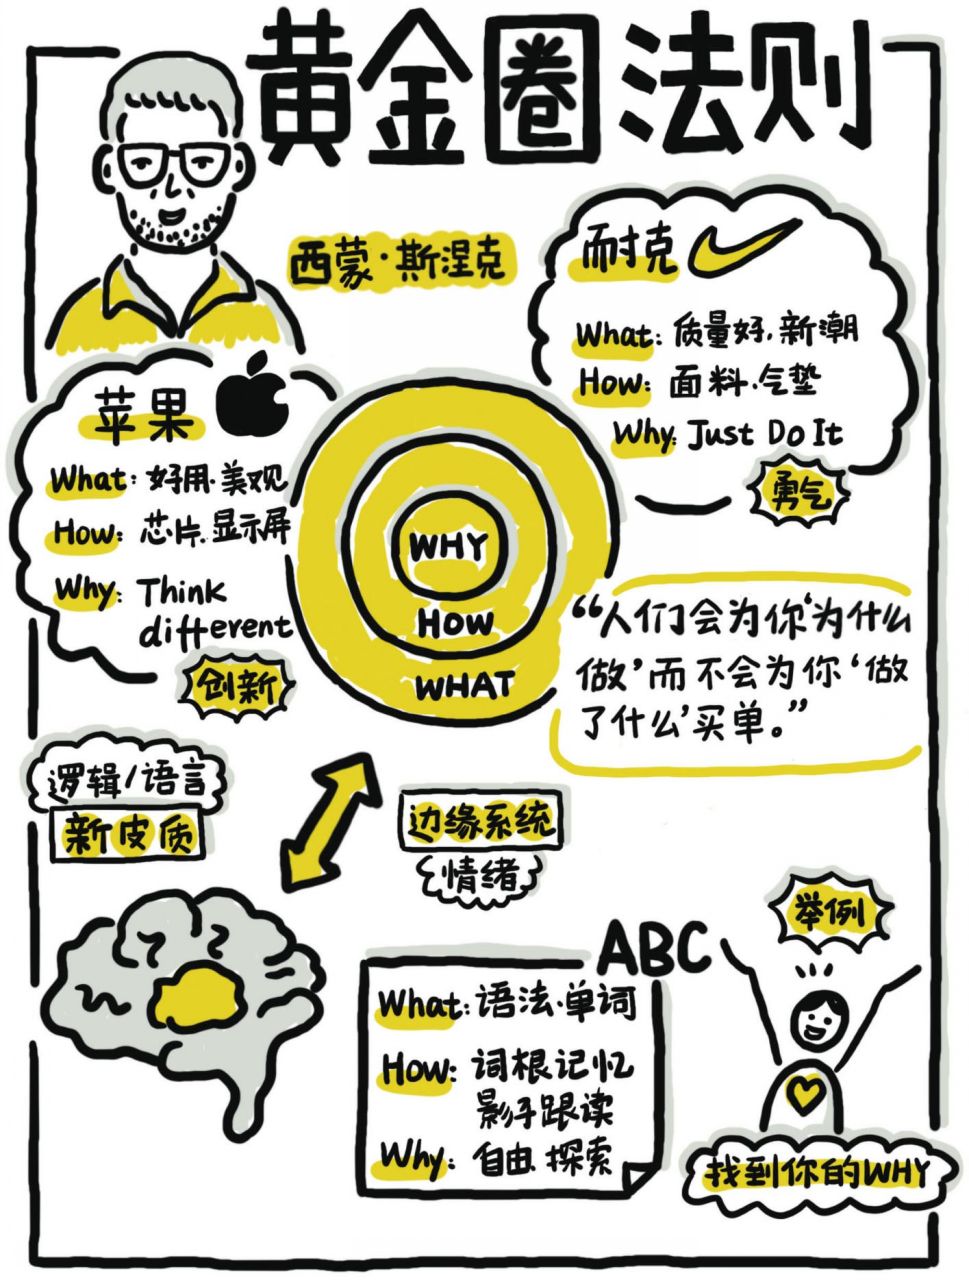 黄金圈法则
西蒙·斯涅克
耐克
What: 质量好.新潮
How: 面料.气垫
Why: Just Do It
勇气
苹果
What: 好用.美观
How: 芯片.显示屏
Why: Think
different
创新
WHY
HOW
WHAT
“人们会为你‘为什么
做’而不会为你‘做
了什么’买单。”
逻辑/语言
新皮质
边缘系统
情绪
举例
ABC
What: 语法.单词
How: 词根记忆
影子跟读
Why: 自由.探索
找到你的WHY